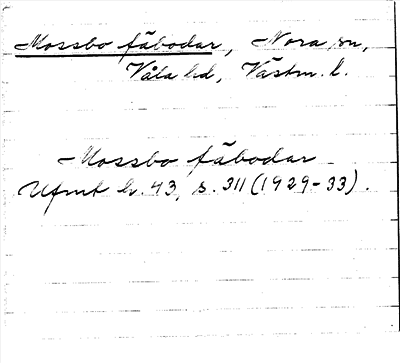 Mossbo fäbodar, Nora sn,
Våla hd, Västm. l.
Mossbo fäbodar
Ufmt h. 43, s. 311 (1929-33).